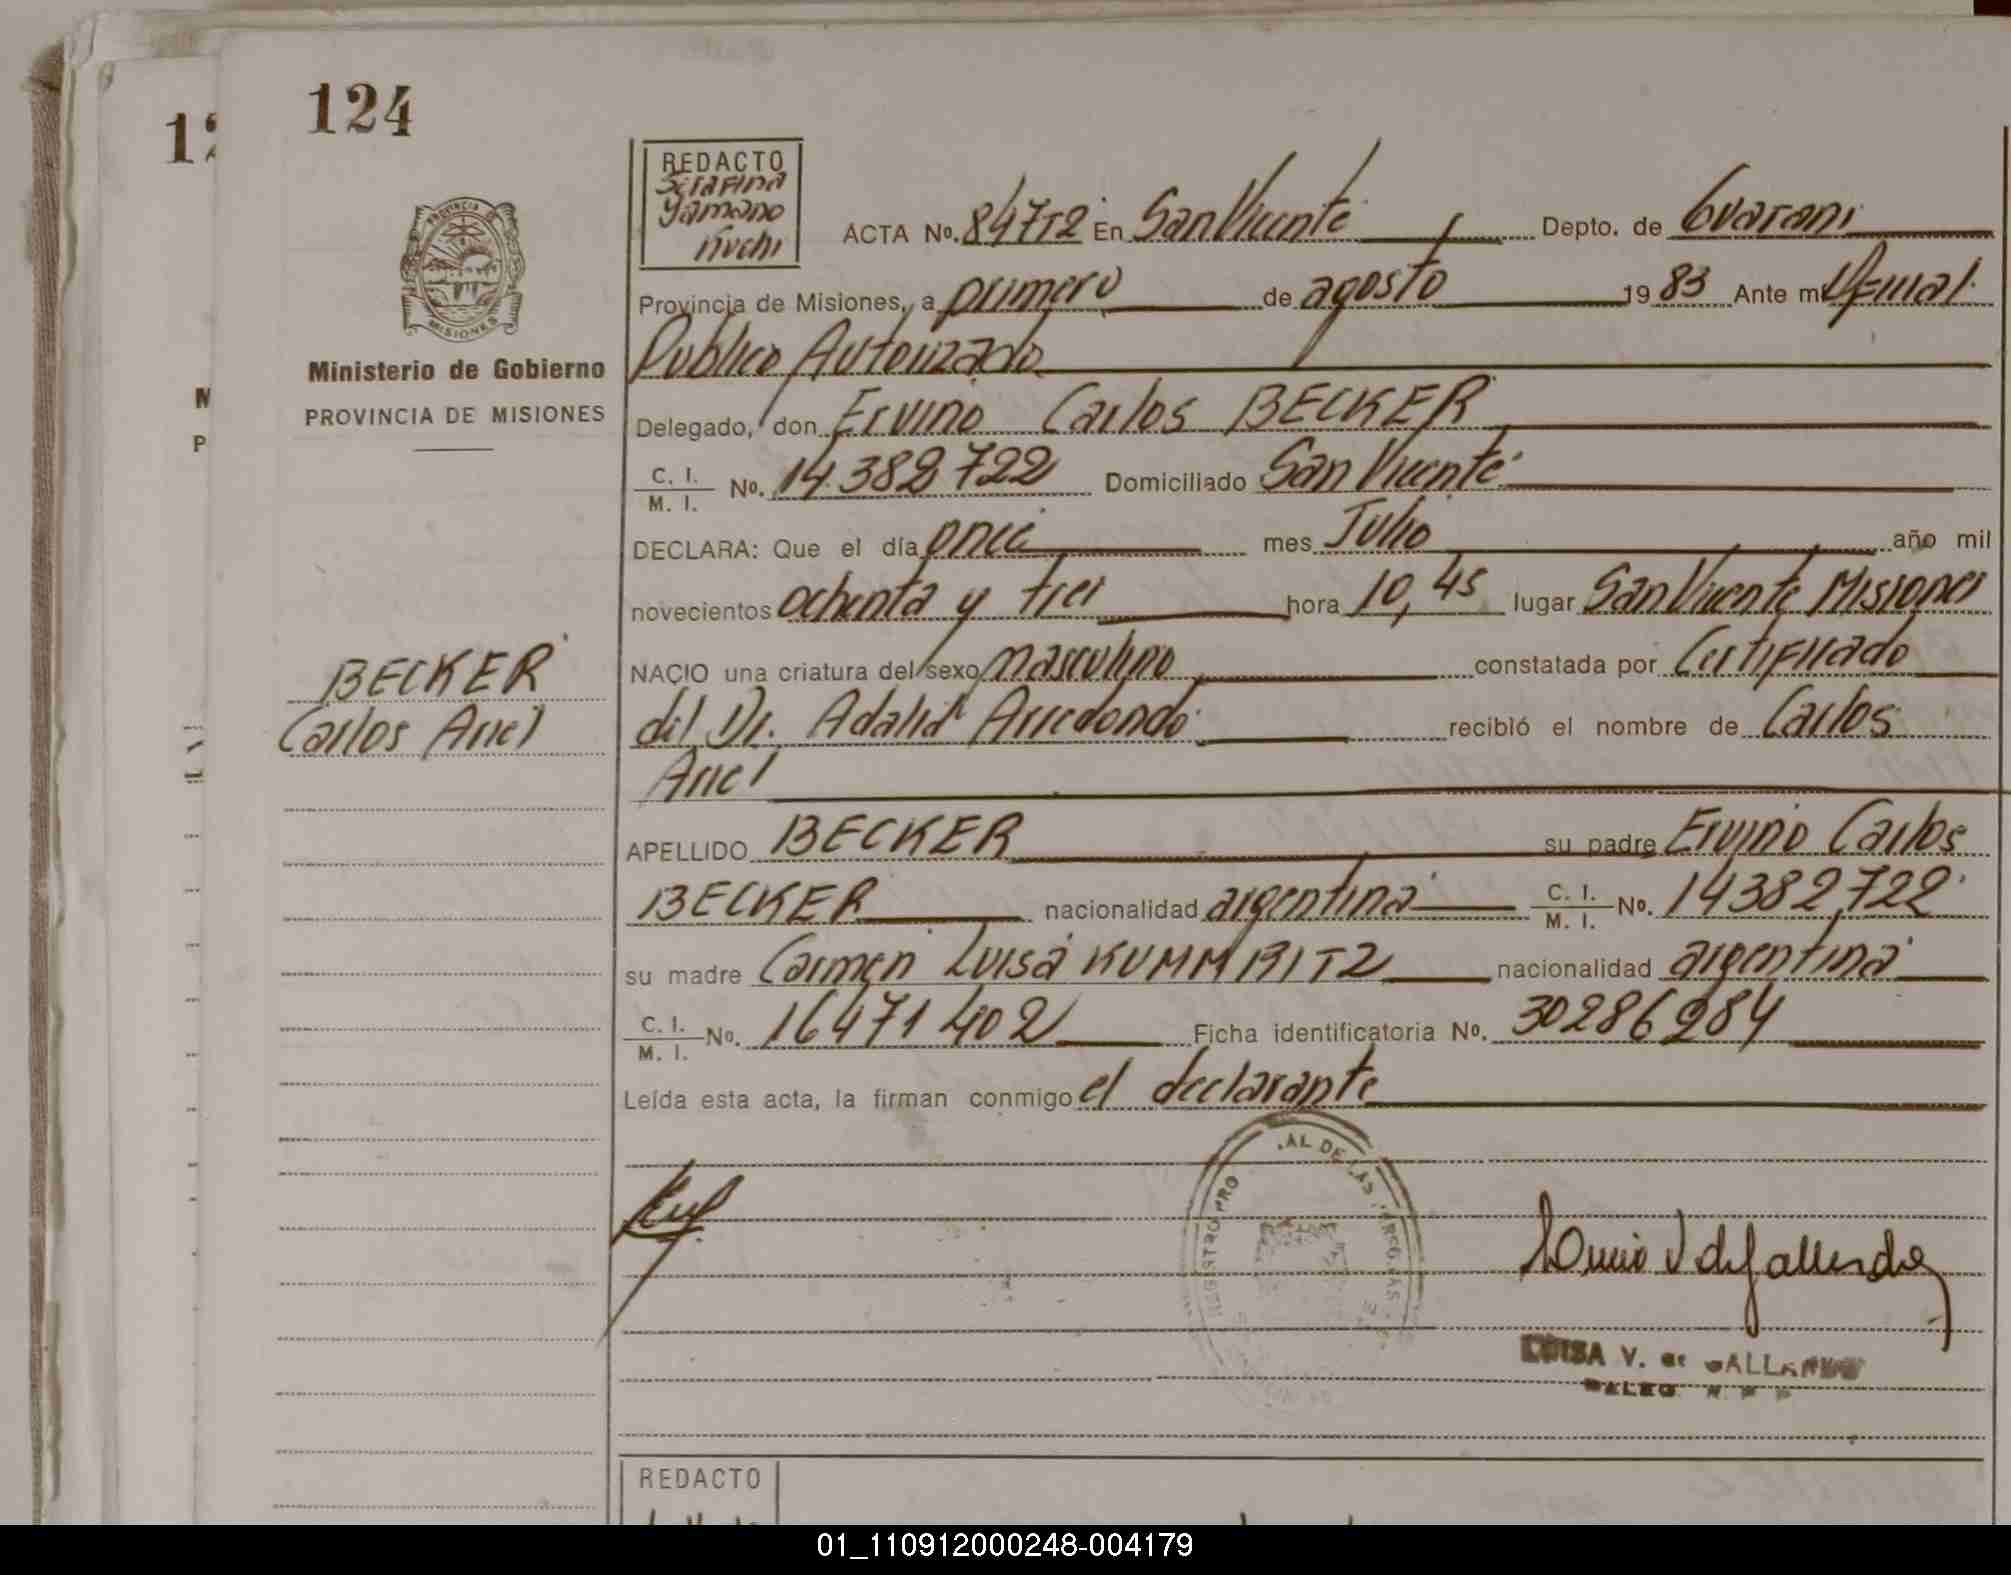 124
12
REDACTO
Serafina
Yamano
Kuchi
ACTA No. 847T2 En San Vicente Depto. de Guaraní
PROVINCIA DE
MISIONES
Provincia de Misiones, a primero de agosto 1983 Ante mi Oficial
Publico Autorizado
Ministerio de Gobierno
PROVINCIA DE MISIONES
M
P
Delegado, don Ervino Carlos BECKER
C. I.
M. I. No. 14.382722 Domiciliado San Vicente
DECLARA: Que el día once mes Julio año mil
novecientos ochenta y tres hora 10,45 lugar San Vicente Misiones
BECKER
Carlos Ariel
NACIO una criatura del sexo masculino constatada por Certificado
del Dr. Adalid Arredondo recibió el nombre de Carlos
Ariel
APELLIDO BECKER su padre Ervino Carlos
BECKER nacionalidad argentina C. I.
M. I. No. 14382722
su madre Carmen Luisa KUMMRITZ nacionalidad argentina
C. I.
M. I. No. 16471402 Ficha identificatoria No. 30286984
Leída esta acta, la firman conmigo el declarante
REGISTRO PRO AL DE LAS
LUISA V. de GALLARDO
REDACTO
01_110912000248-004179